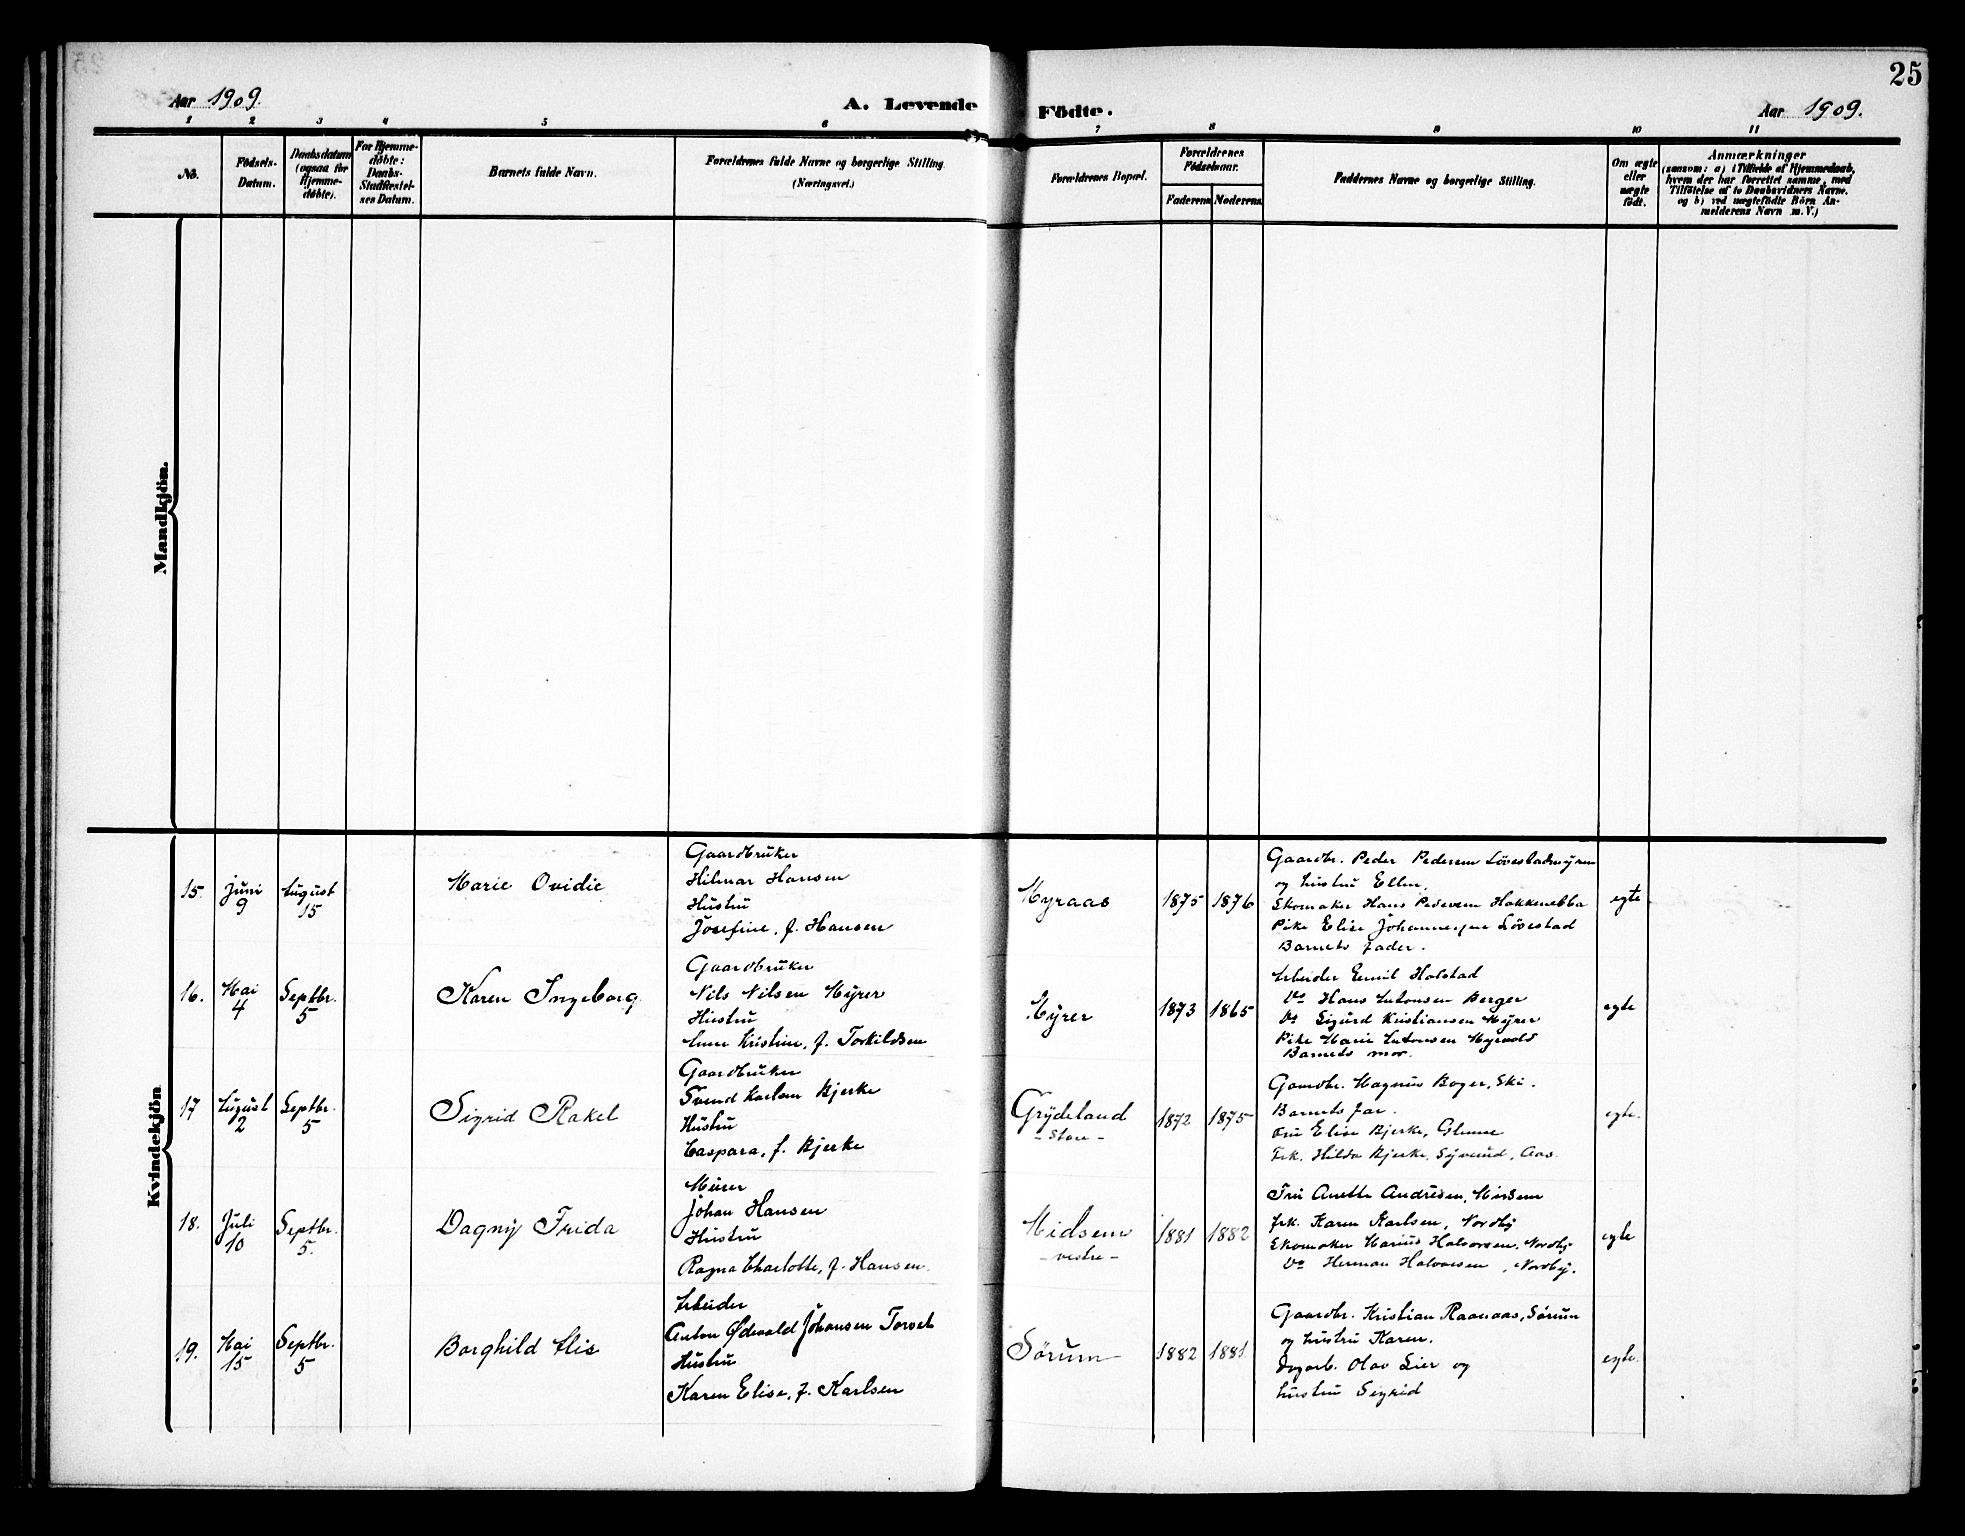 25
Aar 1909.
A. Levende Födte.
Aar 1909.
1 2 3 4 5 6 7 8 9 10 11
No.
Födsels-
Datum.
Daabsdatum
(ogsaa for
Hjemme-
döbte).
For Hjemme-
döbte:
Daabs-
Stadfæstel-
ses Datum.
Barnets fulde Navn.
Forældrenes fulde Navne og borgerlige Stilling.
(Næringsvei.)
Forældrenes Bopæl.
Forældrenes
Födselsaar.
Faderens Moderens
Faddernes Navne og borgerlige Stilling.
Om ægte
eller
uægte
födt.
Anmærkninger
(saasom: a) i Tilfælde af Hjemmedaab,
hvem der har forrettet samme, med
Tilföielse af to Daabsvidners Navne,
og b) ved uægtefödte Börn An-
melderens Navn m. V.)
Mandkjön.
Kvindekjön
15.
Juni
9
August
15
Marie Ovidie
Gaardbruker
Hilmar Hansen
Hustru
Josefine, f. Hansen
Myraas
1875 1876
Gaardbr. Peder Pedersen Lövestadmyren
og hustru Ellen,
Skomaker Hans Pedersen Hakkenebba
Pike Elise Johannesen Lövestad
Barnets fader.
egte
16.
Mai
4
Septbr.
5
Karen Ingeborg
Gaardbruker
Nils Nilsen Myrer
Hustru
Anne Kristine, f. Torkildsen
Myrer
1873 1865
Arbeider Emil Holstad
Do Hans Antonsen Berger
Do Sigurd Kristiansen Myrer
Pike Marie Antonsen Myrvold
Barnets mor.
egte
17
August
2
Septbr.
5
Sigrid Rakel
Gaardbruker
Svend Karlsen Bjerke
Hustru
Caspara, f. Bjerke
Grydeland
- store -
1872 1875
Gaardbr. Magnus Boger, Ski.
Barnets far.
Fru Elise Bjerke, Glenne
Frk. Hilda Bjerke, Syverud, Aas.
egte.
18.
Juli
10
Septbr.
5.
Dagny Frida
Murer
Johan Hansen
Hustru
Ragna Charlotte, f. Hansen.
Midsem
- vestre -
1881 1882
Fru Anette Andresen, Midsem
frk. Karen Karlsen, Nordby
Skomaker Marius Halvorsen, Nordby
Do Herman Halvorsen, Nordby.
egte
19.
Mai
15
Septbr.
5
Borghild Alis
Arbeider
Anton Ødevald Johansen Torset
Hustru
Karen Elise, f. Karlsen
Sørum
1882 1881
Gaardbr. Kristian Raanaas, Sørum
og hustru Karen.
Dagarb. Olav Lier og
hustru Sigrid
egte.